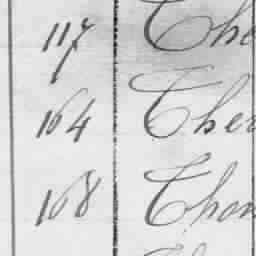 117 The
164 Ther
168 Thom